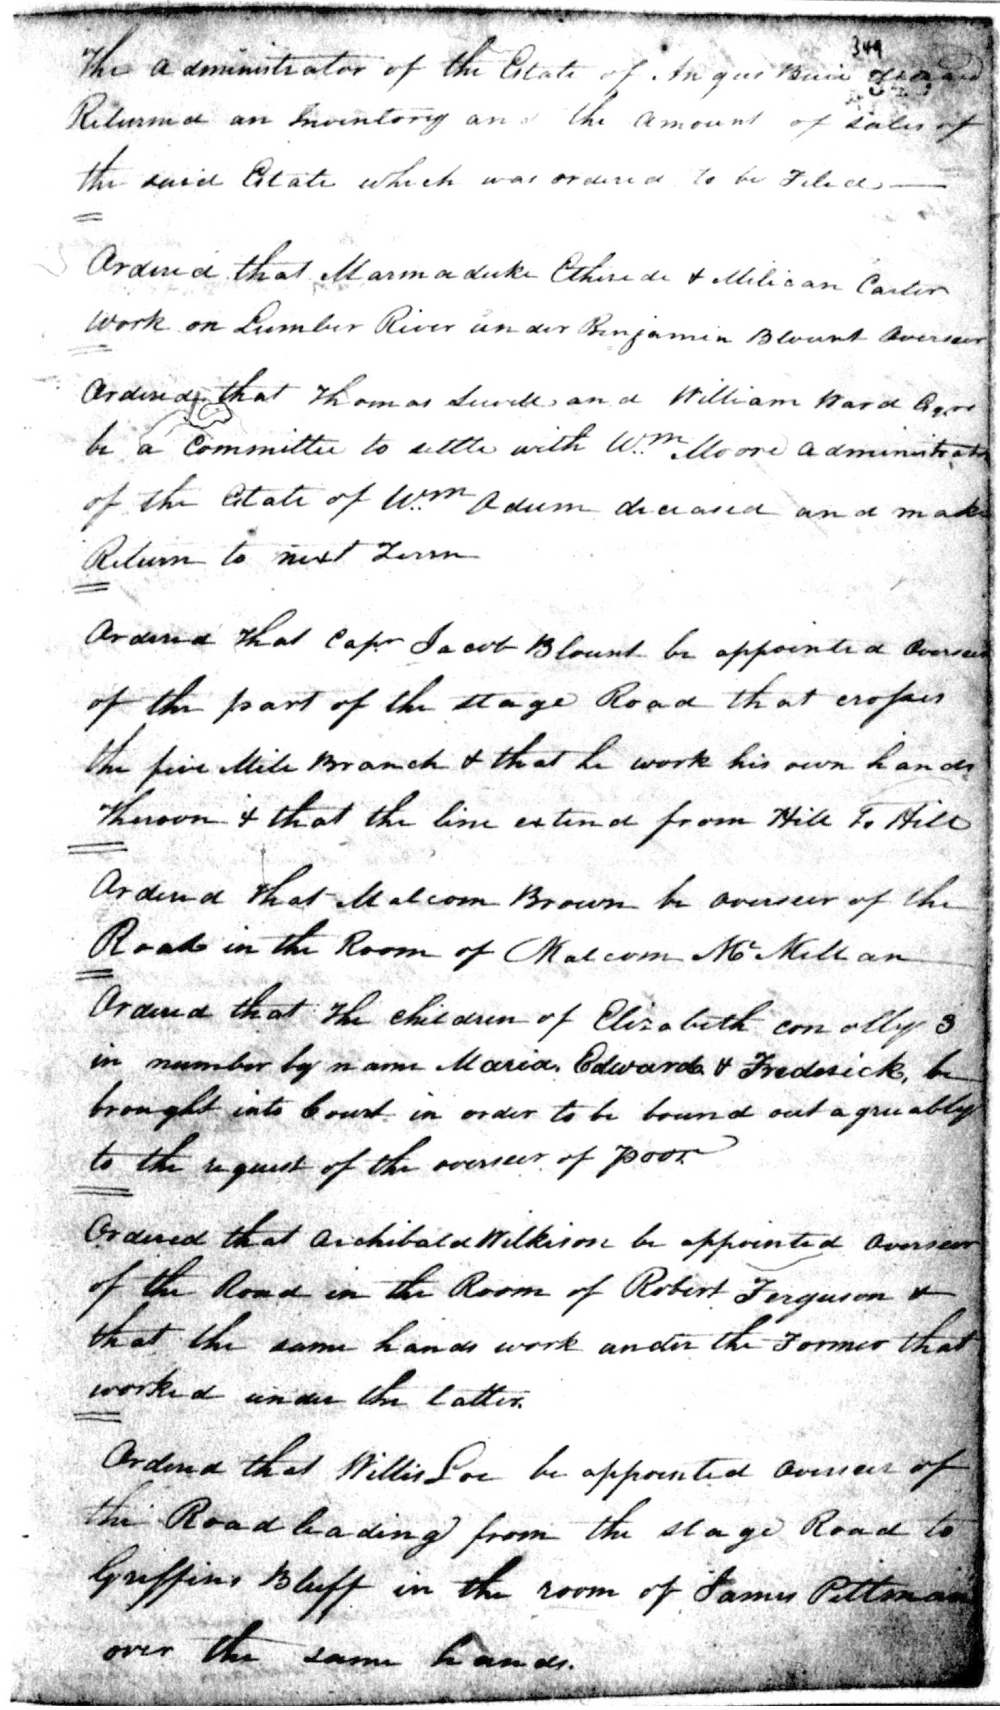 349
The Administrator of the Estate of Angus Buie
Returned an Inventory and the amount of sales of
the said Estate which was ordered to be Filed
Ordered that Marmaduke Etherede & Milican Carter
Work on Lumber River under Benjamin Blount Overseer
Ordered that Thomas and William Ward Esqrs
be a Committee to settle with Wm Moore Administrator
of the Estate of Wm Odum deceased and make
Return to next Term
Ordered that Capt Jacob Blount be appointed Overseer
of the part of the stage Road that crosses
the five Mile Branch & that he work his own hands
Thereon & that the line extend from Hill To Hill
Ordered that Malcom Brown be overseer of the
Road in the Room of Malcom McMillan
Ordered that the children of Elizabeth conolly 3
in number by name Maria, Edward & Frederick, be
brought into Court in order to be bound out agreeably
to the request of the overseer of poor
Ordered that Archibald Wilkison be appointed Overseer
of the Road in the Room of Robert Ferguson &
that the same hands work under the Former that
worked under the latter.
Ordered that Willis Loe be appointed Overseer of
the Road leading from the stage Road to
Griffins Bluff in the room of James Pittman
over the same hands.